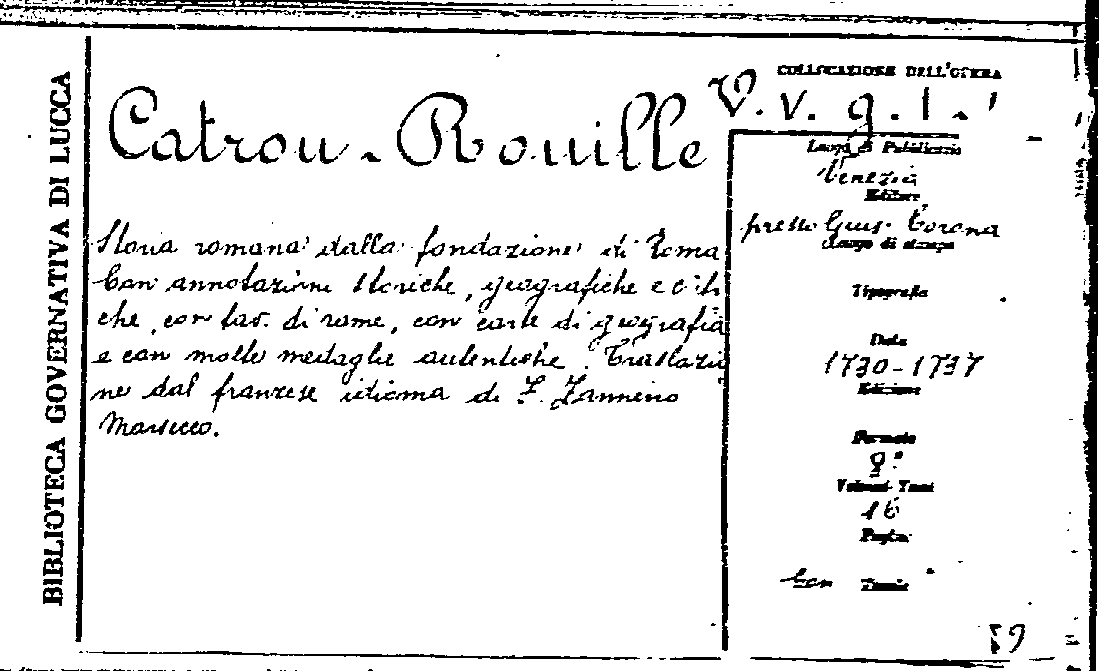 BIBLIOTECA GOVERNATIVA DI LUCCA
Catrou - Rouille
Storia romana dalla fondazione di Roma
Con annotazioni storiche, geografiche e criti
che, con tav. di rame, con carte di geografia
e con molte medaglie autentiche. Traslazio
ne dal franzese idioma di Z. Zannino
Marsecco.
COLLOCAZIONE DELL'OPERA
V. v. g. 1.
Luogo di Pubblicazio
Venezia
Editore
presso Gius. Corona
Luogo di stampa
Tipografia
Data
1730-1737
Edizione
Formato
8°
Volumi-Tomi
16
Pagine
Con Tavole